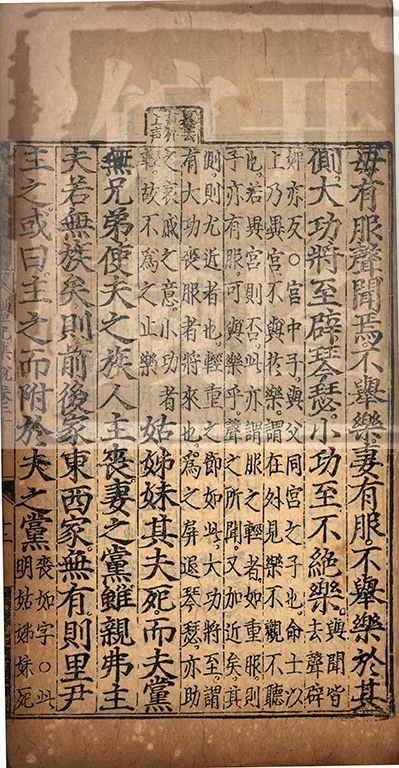 母有服聲聞焉不舉樂妻有服不舉樂於其
側大功將至辟琴瑟小功至不絶樂與聞皆
去聲辟
婢亦反○宮中子與父同宮之子也命士以
上乃異宮不與於樂謂在外見樂不觀不聽
也若異宮則否此亦謂服之輕者如重服則
子亦有服可與樂乎聲之所聞又加近矣其
側則尤近者也輕重之節如此大功將至謂
有大功喪服者將來也爲之屏退琴瑟亦助
之哀戚之意小功者
輕故不爲之止樂
姑姊妹其夫死而夫黨
無兄弟使夫之族人主喪妻之黨雖親弗主
夫若無族矣則前後家東西家無有則里尹
主之或曰主之而附於夫之黨喪如字○此
明姑姊妹死